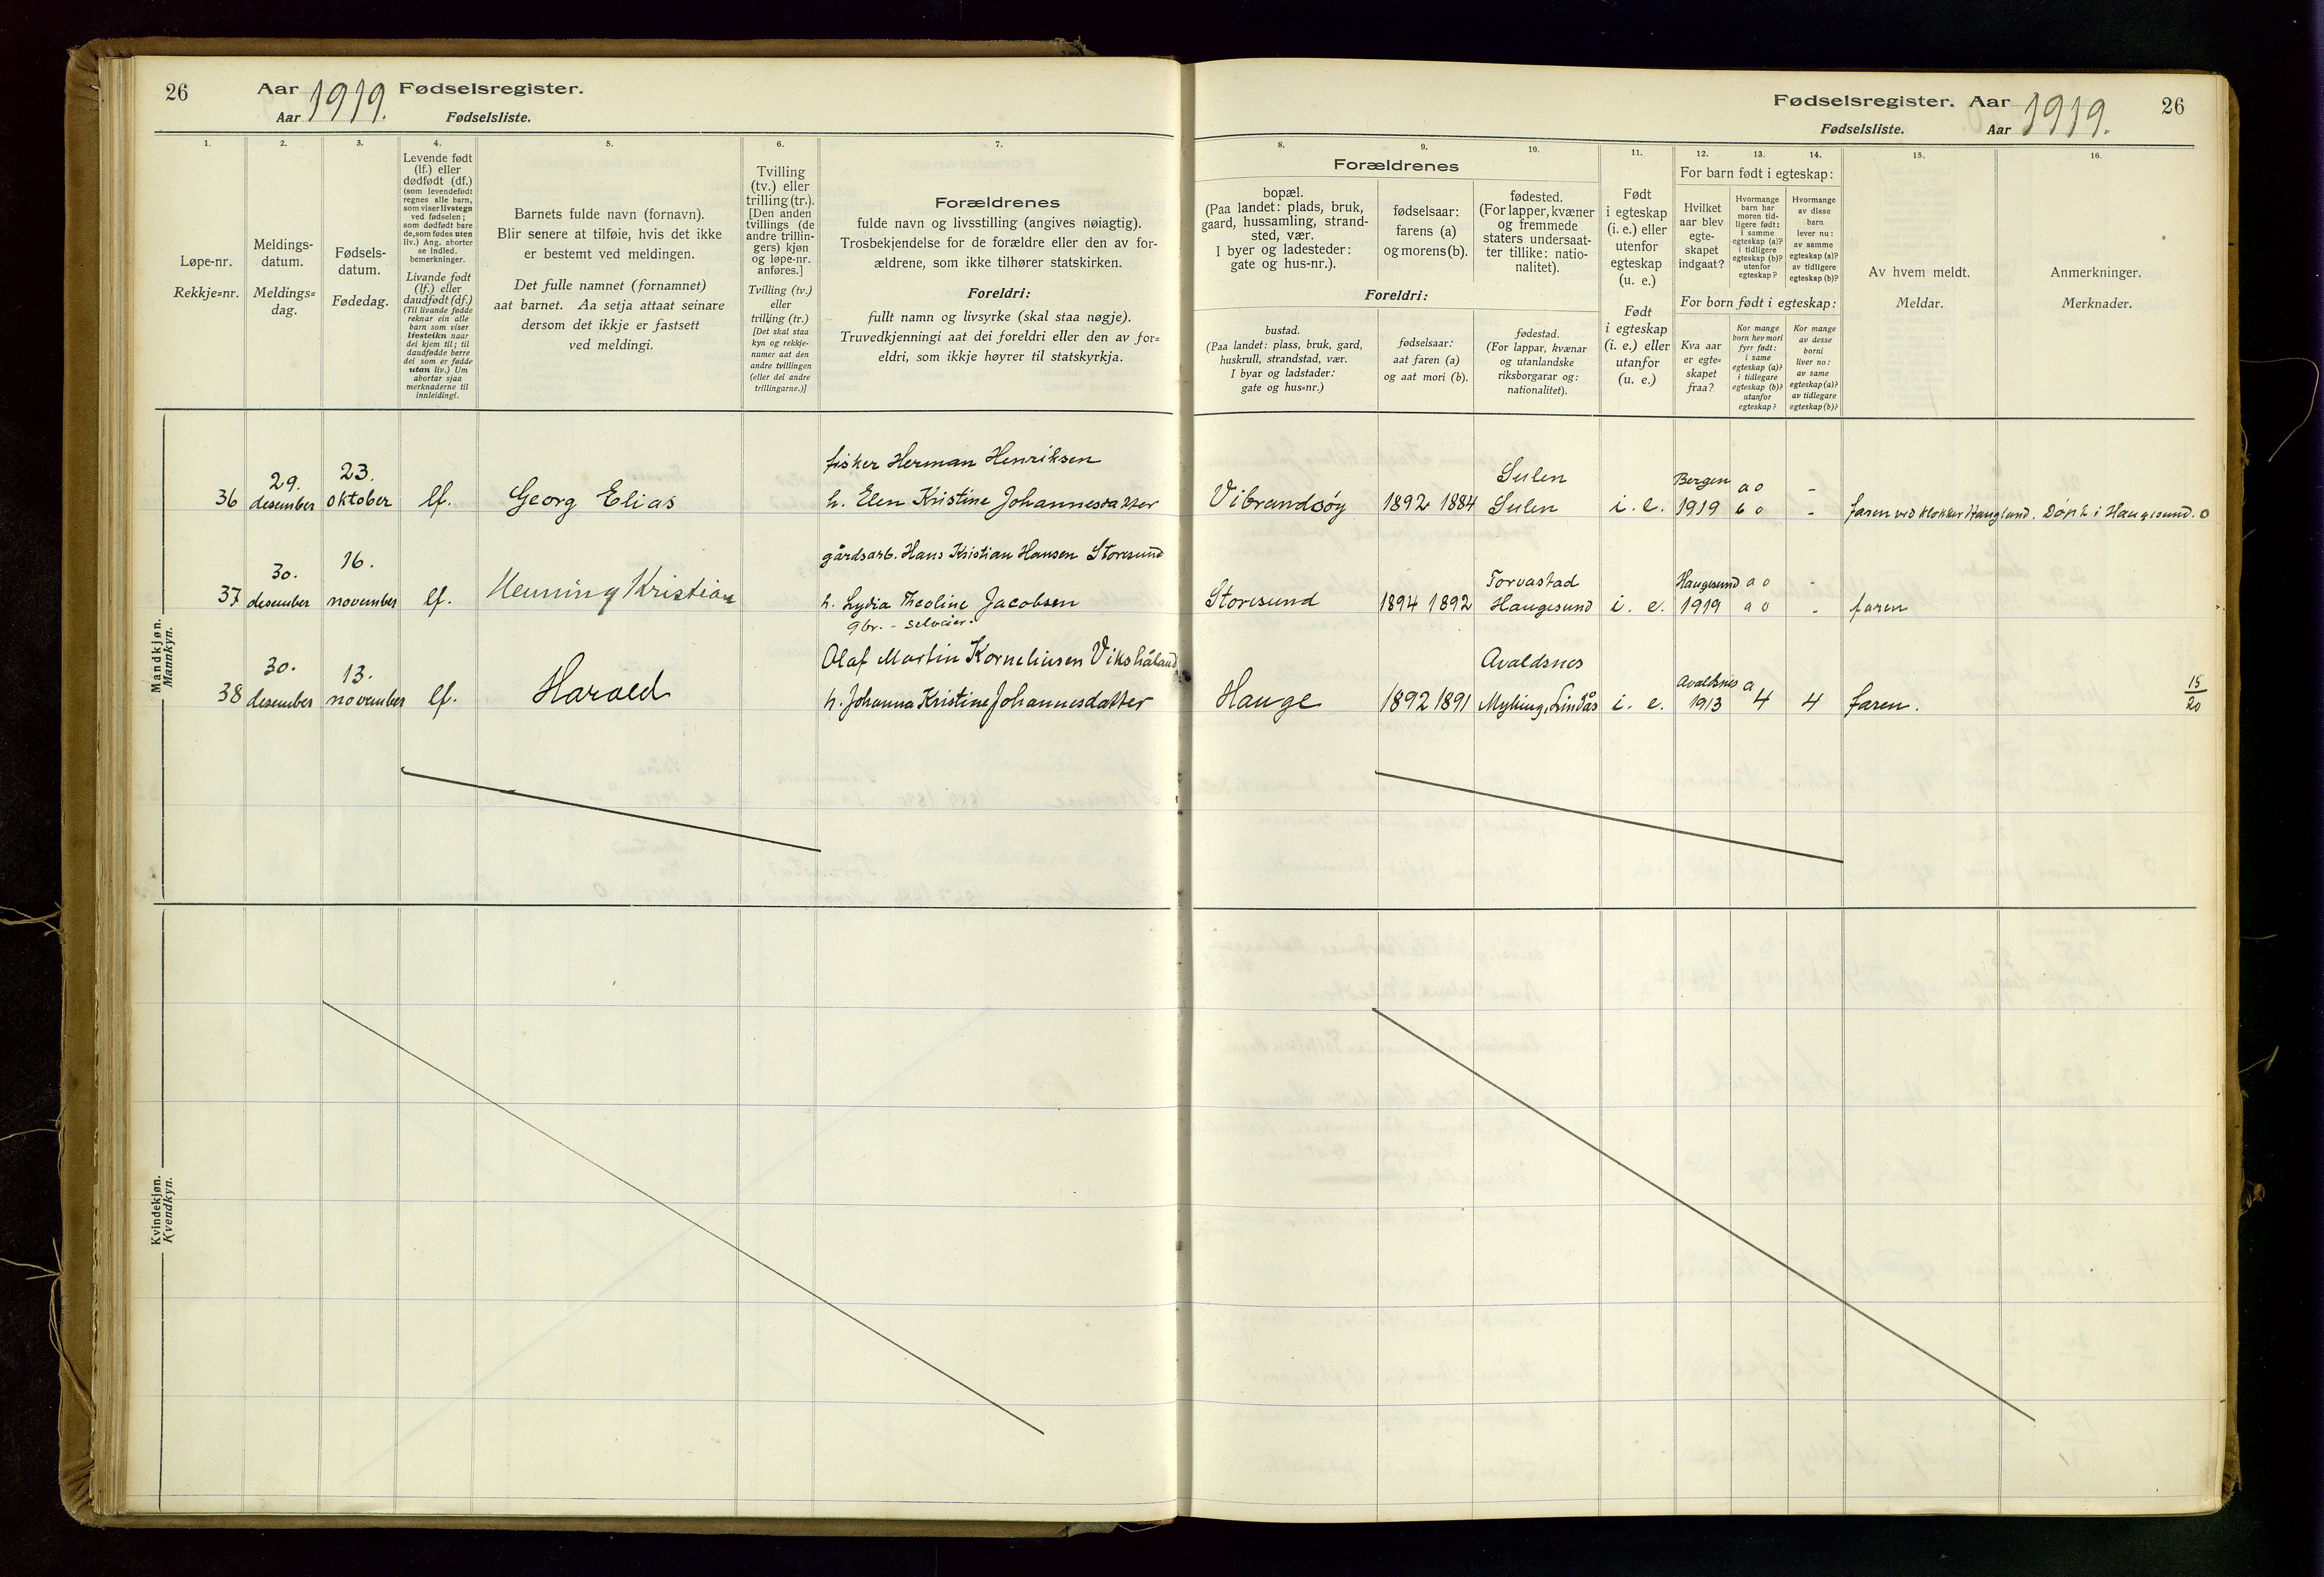 26 Aar 1919. Fødselsregister.
Aar Fødselsliste.
Fødselsregister. Aar 1919. 26
Fødselsliste. Aar
1. 2. 3. 4. 5. 6. 7.
Løpe-nr.
Rekkje=nr.
Meldings-
datum.
Meldings=
dag.
Fødsels-
datum.
Fødedag.
Levende født
(lf.) eller
dødfødt (df.)
(som levendefødt
regnes alle barn,
som viser livstegn
ved fødselen;
som dødfødt bare
de, som fødes uten
liv.) Ang. aborter
se indled.
bemerkninger.
Livande født
(lf.) eller
daudfødt (df.)
(Til livande fødde
reknar ein alle
barn som viser
livsteikn naar
dei kjem til; til
daudfødde berre
dei som er fødde
utan liv.) Um
abortar sjaa
merknaderne til
innleidingi.
Barnets fulde navn (fornavn).
Blir senere at tilføie, hvis det ikke
er bestemt ved meldingen.
Det fulle namnet (fornamnet)
aat barnet. Aa setja attaat seinare
dersom det ikkje er fastsett
ved meldingi.
Tvilling
(tv.) eller
trilling (tr.).
[Den anden
tvillings (de
andre trillin-
gers) kjøn
og løpe-nr.
anføres.]
Tvilling (tv.)
eller
trilling (tr.)
[Det skal staa
kyn og rekkje-
numer aat den
andre tvillingen
(eller dei andre
trillingarne.)]
Forældrenes
fulde navn og livsstilling (angives nøiagtig).
Trosbekjendelse for de forældre eller den av for-
ældrene, som ikke tilhører statskirken.
Foreldri:
fullt namn og livsyrke (skal staa nøgje).
Truvedkjenningi aat dei foreldri eller den av for=
eldri, som ikkje høyrer til statskyrkja.
8. 9. 10. 11. 12. 13. 14. 15. 16.
Forældrenes
bopæl.
(Paa landet: plads, bruk,
gaard, hussamling, strand-
sted, vær.
I byer og ladesteder:
gate og hus-nr.).
fødselsaar:
farens (a)
og morens (b).
fødested.
(For lapper, kvæner
og fremmede
staters undersaat-
ter tillike: natio-
nalitet).
Foreldri:
bustad.
(Paa landet: plass, bruk, gard,
huskrull, strandstad, vær.
I byar og ladstader:
gate og hus=nr.)
fødselsaar:
aat faren (a)
og aat mori (b).
fødestad.
(For lappar, kvænar
og utanlandske
riksborgarar og:
nationalitet).
Født
i egteskap
(i. e.) eller
utenfor
egteskap
(u. e.)
Født
i egteskap
(i. e.) eller
utanfor
egteskap
(u. e.)
For barn født i egteskap:
Hvilket
aar blev
egte-
skapet
indgaat?
Hvormange
barn har
moren tid-
ligere født:
i samme
egteskap (a)?
i tidligere
egteskap (b)?
utenfor
egteskap?
Hvormange
av disse
barn
lever nu:
av samme
egteskap (a)?
av tidligere
egteskap (b)?
For born født i egteskap:
Kva aar
er egte=
skapet
fraa?
Kor mange
born hev mori
fyrr født:
i same
egteskap (a)?
i tidlegare
egteskap (b)?
utanfor
egteskap?
Kor mange
av desse
borni
liver no:
av same
egteskap (a)?
av tidlegare
egteskap (b)?
Av hvem meldt.
Meldar.
Anmerkninger.
Merknader.
Mandkjøn.
Mannkyn.
36 29. desember 23. oktober lf. Georg Elias fisker Herman Henriksen
h. Elen Kristine Johannesdatter Vibrandsøy 1892 1884 Sulen Sulen i. e. Bergen 1919 a 0 - b 0 - faren ved klokker Haugland. Døpt i Haugesund. 0
37 30. desember 16. november lf. Henning Kristian gårdsarb. Hans Kristian Hansen Storesund
h. Lydia Theoline Jacobsen Storesund 1894 1892 Torvastad Haugesund i. e. Haugesund 1919 a 0 - a 0 - faren
38 30. desember 13. november lf. Harald gbr. - selveier.
Olaf Martin Korneliusen Vikshåland
h. Johanna Kristine Johannesdatter Hauge 1892 1891 Avaldsnes Myking, Lindås i. e. Avaldsnes 1913 a 4 4 faren. 15/20
Kvindekjøn.
Kvendkyn.